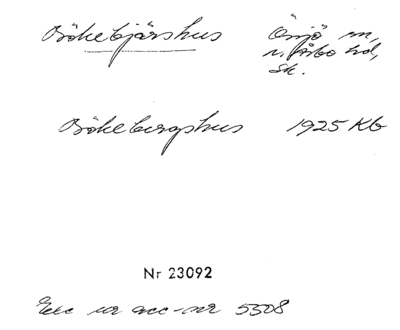 Bökebjärshus Örjö sn,
n. Åsbo hd,
Sk.
Bökebergshus 1925 KB
Nr 23092
Exc ur acc-nr 5508